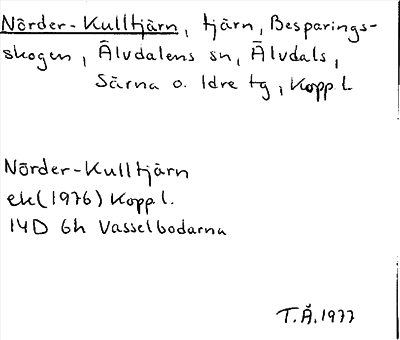 Nörder-Kulltjärn, tjärn, Besparings-
skogen, Älvdalens sn, Älvdals,
Särna o. Idre tg, Kopp l.
Nörder-Kulltjärn
ek(1976) Kopp l.
14D 6h Vasselbodarna
T.Å.1977